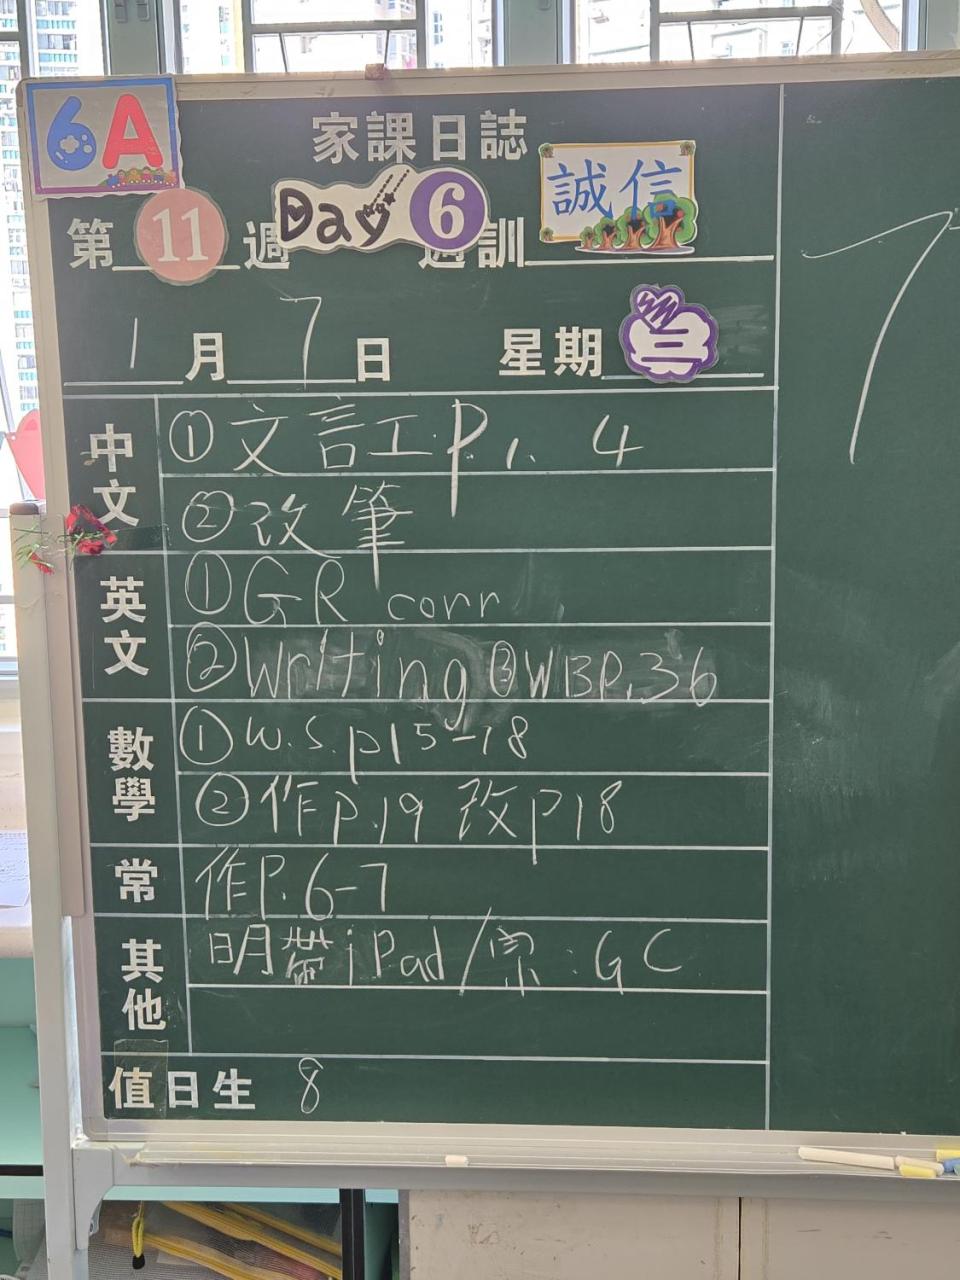 6A
家課日誌
第11週 Day 6 週訓 誠信
1月7日 星期三
中文
①文言工.P.1、4
②改筆
英文
①GR corr
②Writing ③WBP.36
數學
①W.S.p15-18
②作p.19 改p18
常
作P.6-7
其他
明帶iPad/票:GC
值日生 8
7